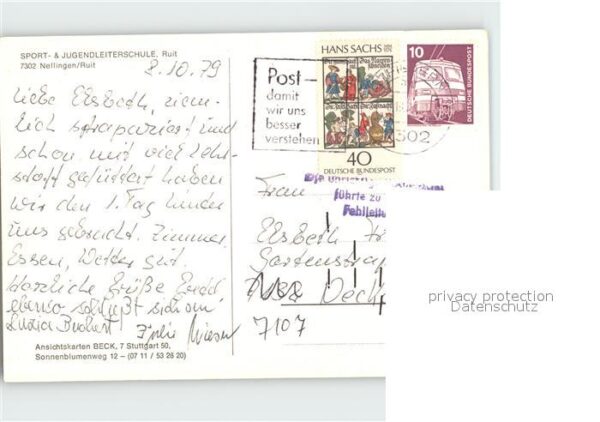 SPORT- & JUGENDLEITERSCHULE, Ruit
7302 Nellingen/Ruit
8.10.79
Liebe Elsbeth, ziem-
lich strapaziert und
schon mit viel Lehr-
stoff gefüttert haben
wir den 1. Tag hinter
uns gebracht. Zimmer,
Essen, Wetter gut.
Herzliche Grüße
ebenso schließt sich an
Ansichtskarten BECK, 7 Stuttgart 50,
Sonnenblumenweg 12 – (07 11 / 53 28 20)
Post –
damit
wir uns
besser
verstehen
HANS SACHS
40
DEUTSCHE BUNDESPOST
10
DEUTSCHE BUNDESPOST
7302
führte zu
Fehlleitu
Frau
Elsbeth
Gartenstra
7107
privacy protection
Datenschutz